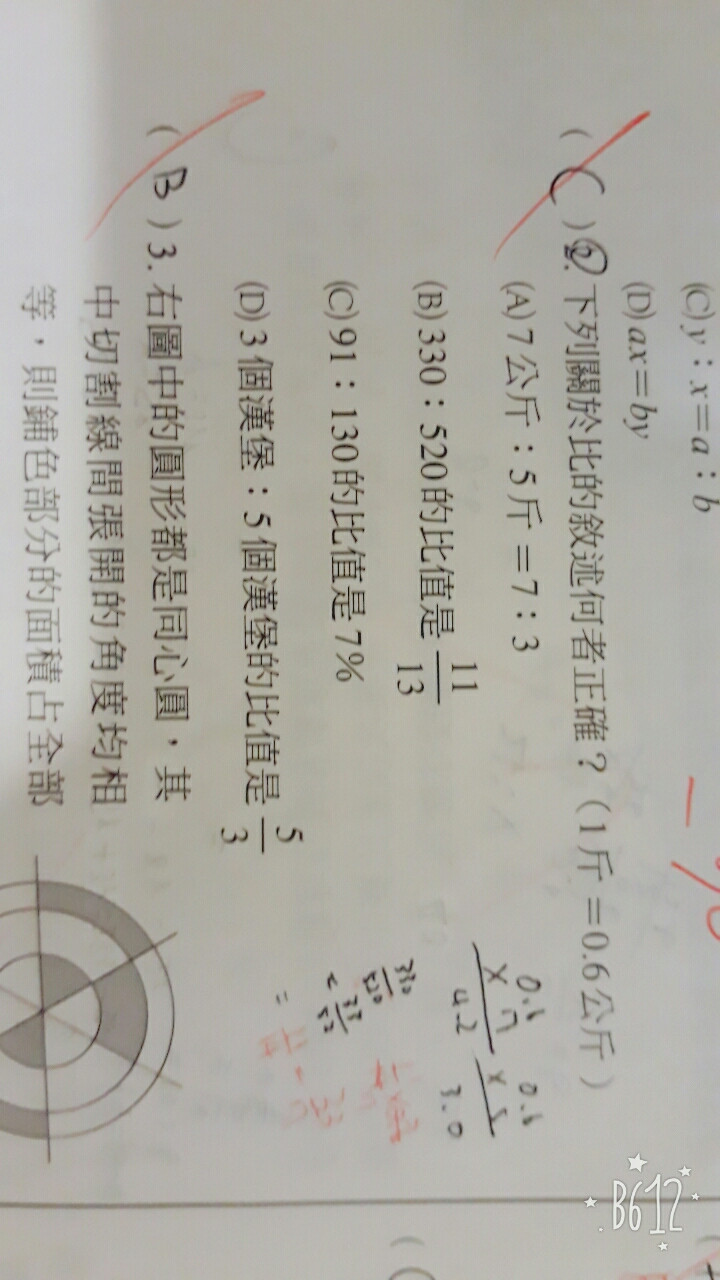 (C) y：x＝a：b
(D) ax＝by
( C ) 2. 下列關於比的敘述何者正確？（1 斤＝0.6 公斤）
(A) 7 公斤：5 斤＝7：3
(B) 330：520 的比值是 11/13
(C) 91：130 的比值是 7%
(D) 3 個漢堡：5 個漢堡的比值是 5/3
( B ) 3. 右圖中的圓形都是同心圓，其
中切割線間張開的角度均相
等，則鋪色部分的面積占全部
0.6
× 7
4.2
0.6
× 5
3.0
330/520
33/52
B612